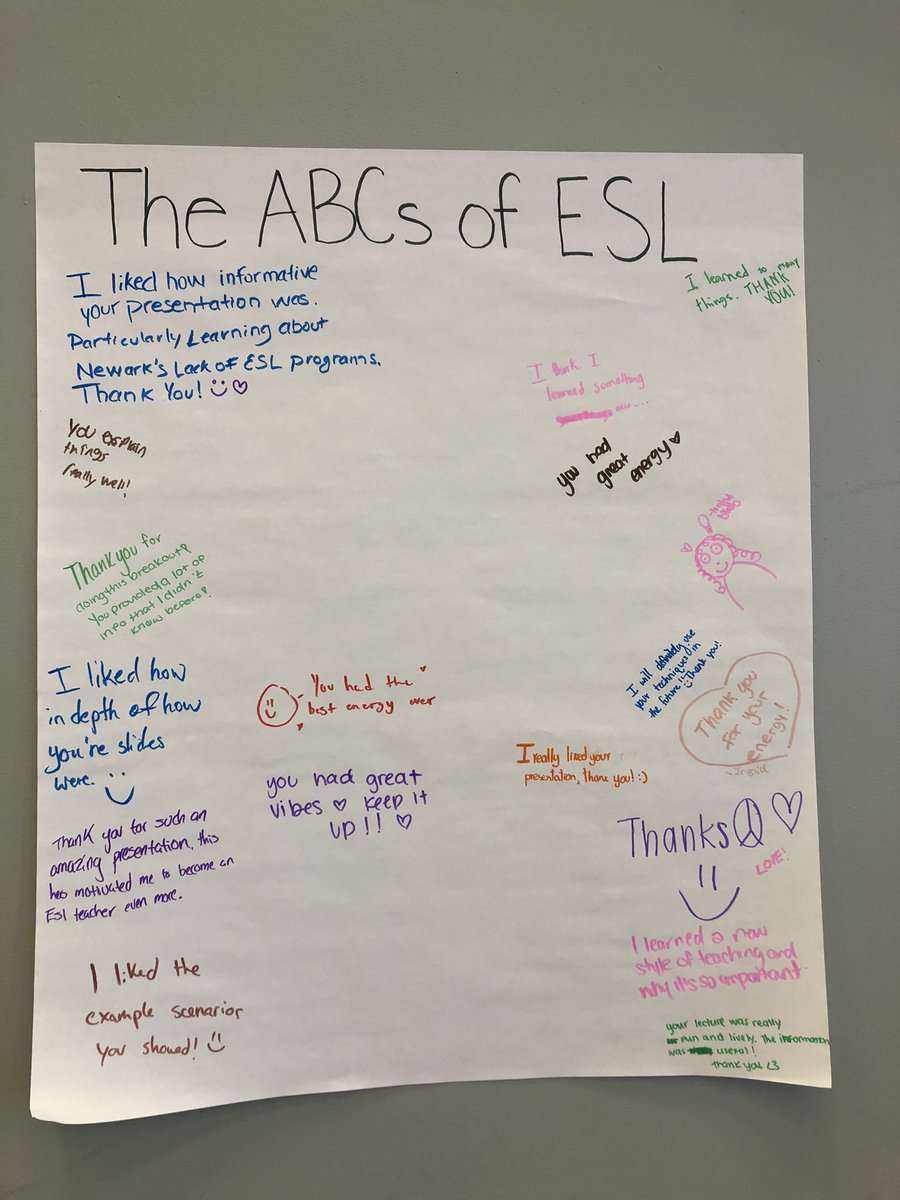 The ABCs of ESL
I liked how informative
your presentation was.
Particularly Learning about
Newark's Lack of ESL programs.
Thank You!
I learned so many
things. THANK
YOU!
I think I
learned something
new...
You explain
things
really well!
you had
great
energy
Thank you for
doing this breakout!
You provided a lot of
info that I didn't
know before!
I liked how
in depth of how
you're slides
were.
You had the
best energy ever
I will definitely use
your techniques in
the future!! Thank you!
Thank you
for your
energy!
- Ingrid
I really liked your
presentation, thank you! :)
you had great
vibes keep it
up!!
Thank you for such an
amazing presentation, this
has motivated me to become an
Esl teacher even more.
Thanks
LOVE!
I learned a new
style of teaching and
why it's so important.
I liked the
example scenarios
you showed!
your lecture was really
fun and lively. The information
was useful!
thank you <3